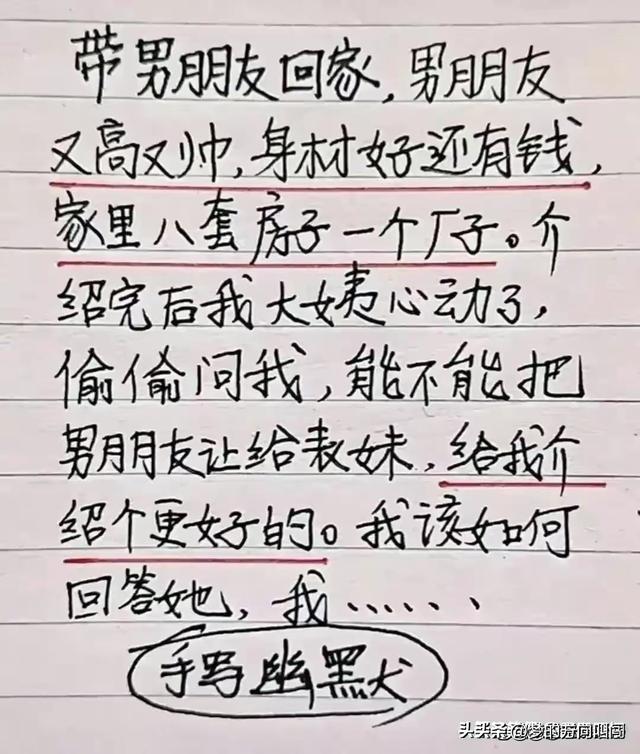 带男朋友回家,男朋友
又高又帅,身材好还有钱,
家里八套房子一个厂子。介
绍完后我大姨心动了,
偷偷问我,能不能把
男朋友让给表妹,给我介
绍个更好的。我该如何
回答她,我……
手写幽默犬